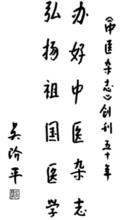 《中医杂志》创刊五十年
办好中医杂志
弘扬祖国医学
吴阶平